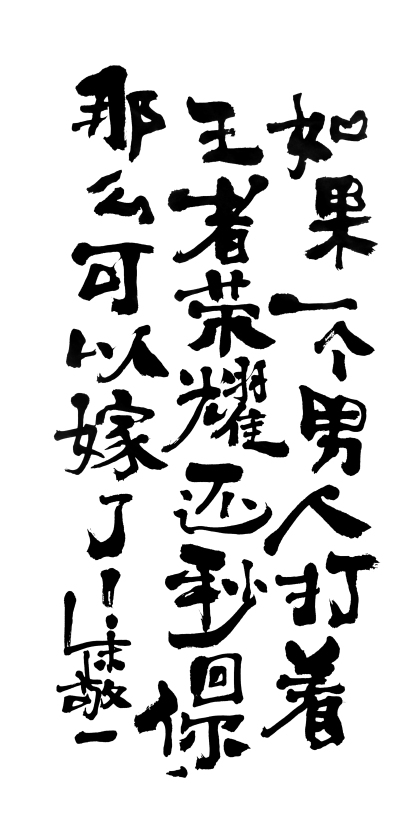 如果一个男人打着
王者荣耀还秒回你，
那么可以嫁了！朱敬一